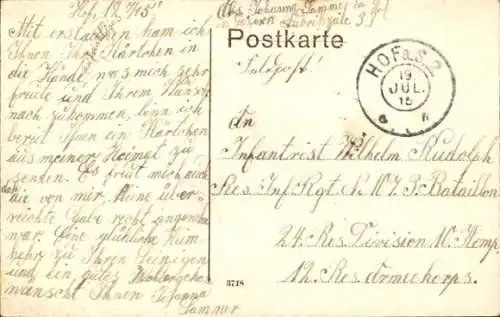 Hof, 18.7/15.
Mit erstaunen kam ich
Ihnen Ihr Kärtchen in
die Hände, was mich sehr
freute und Ihrem Wunsch
nach zukommen, bin ich
bereit Ihnen ein Kärtchen
aus meiner Heimat zu
senken. Es freut mich auch
daß die von mir, kleine über-
reichte Gabe recht angenehm
war. Eine glückliche Heim
kehr zu Ihren Seinigen
und ein gutes Wohlergehen
wünscht Ihnen Johanna
Sammer
Abs. Johanna Sammer in Hof
in Bayern 31
Postkarte
Feldpost!
HOF a. S. 2
19
JUL.
15
An
Infantrist Wilhelm Rudolph
Res. Inf. Rgt. N. 107 3. Bataillon
24. Res. Division 10. Komp.
12. Res. Armeekorps.
8718